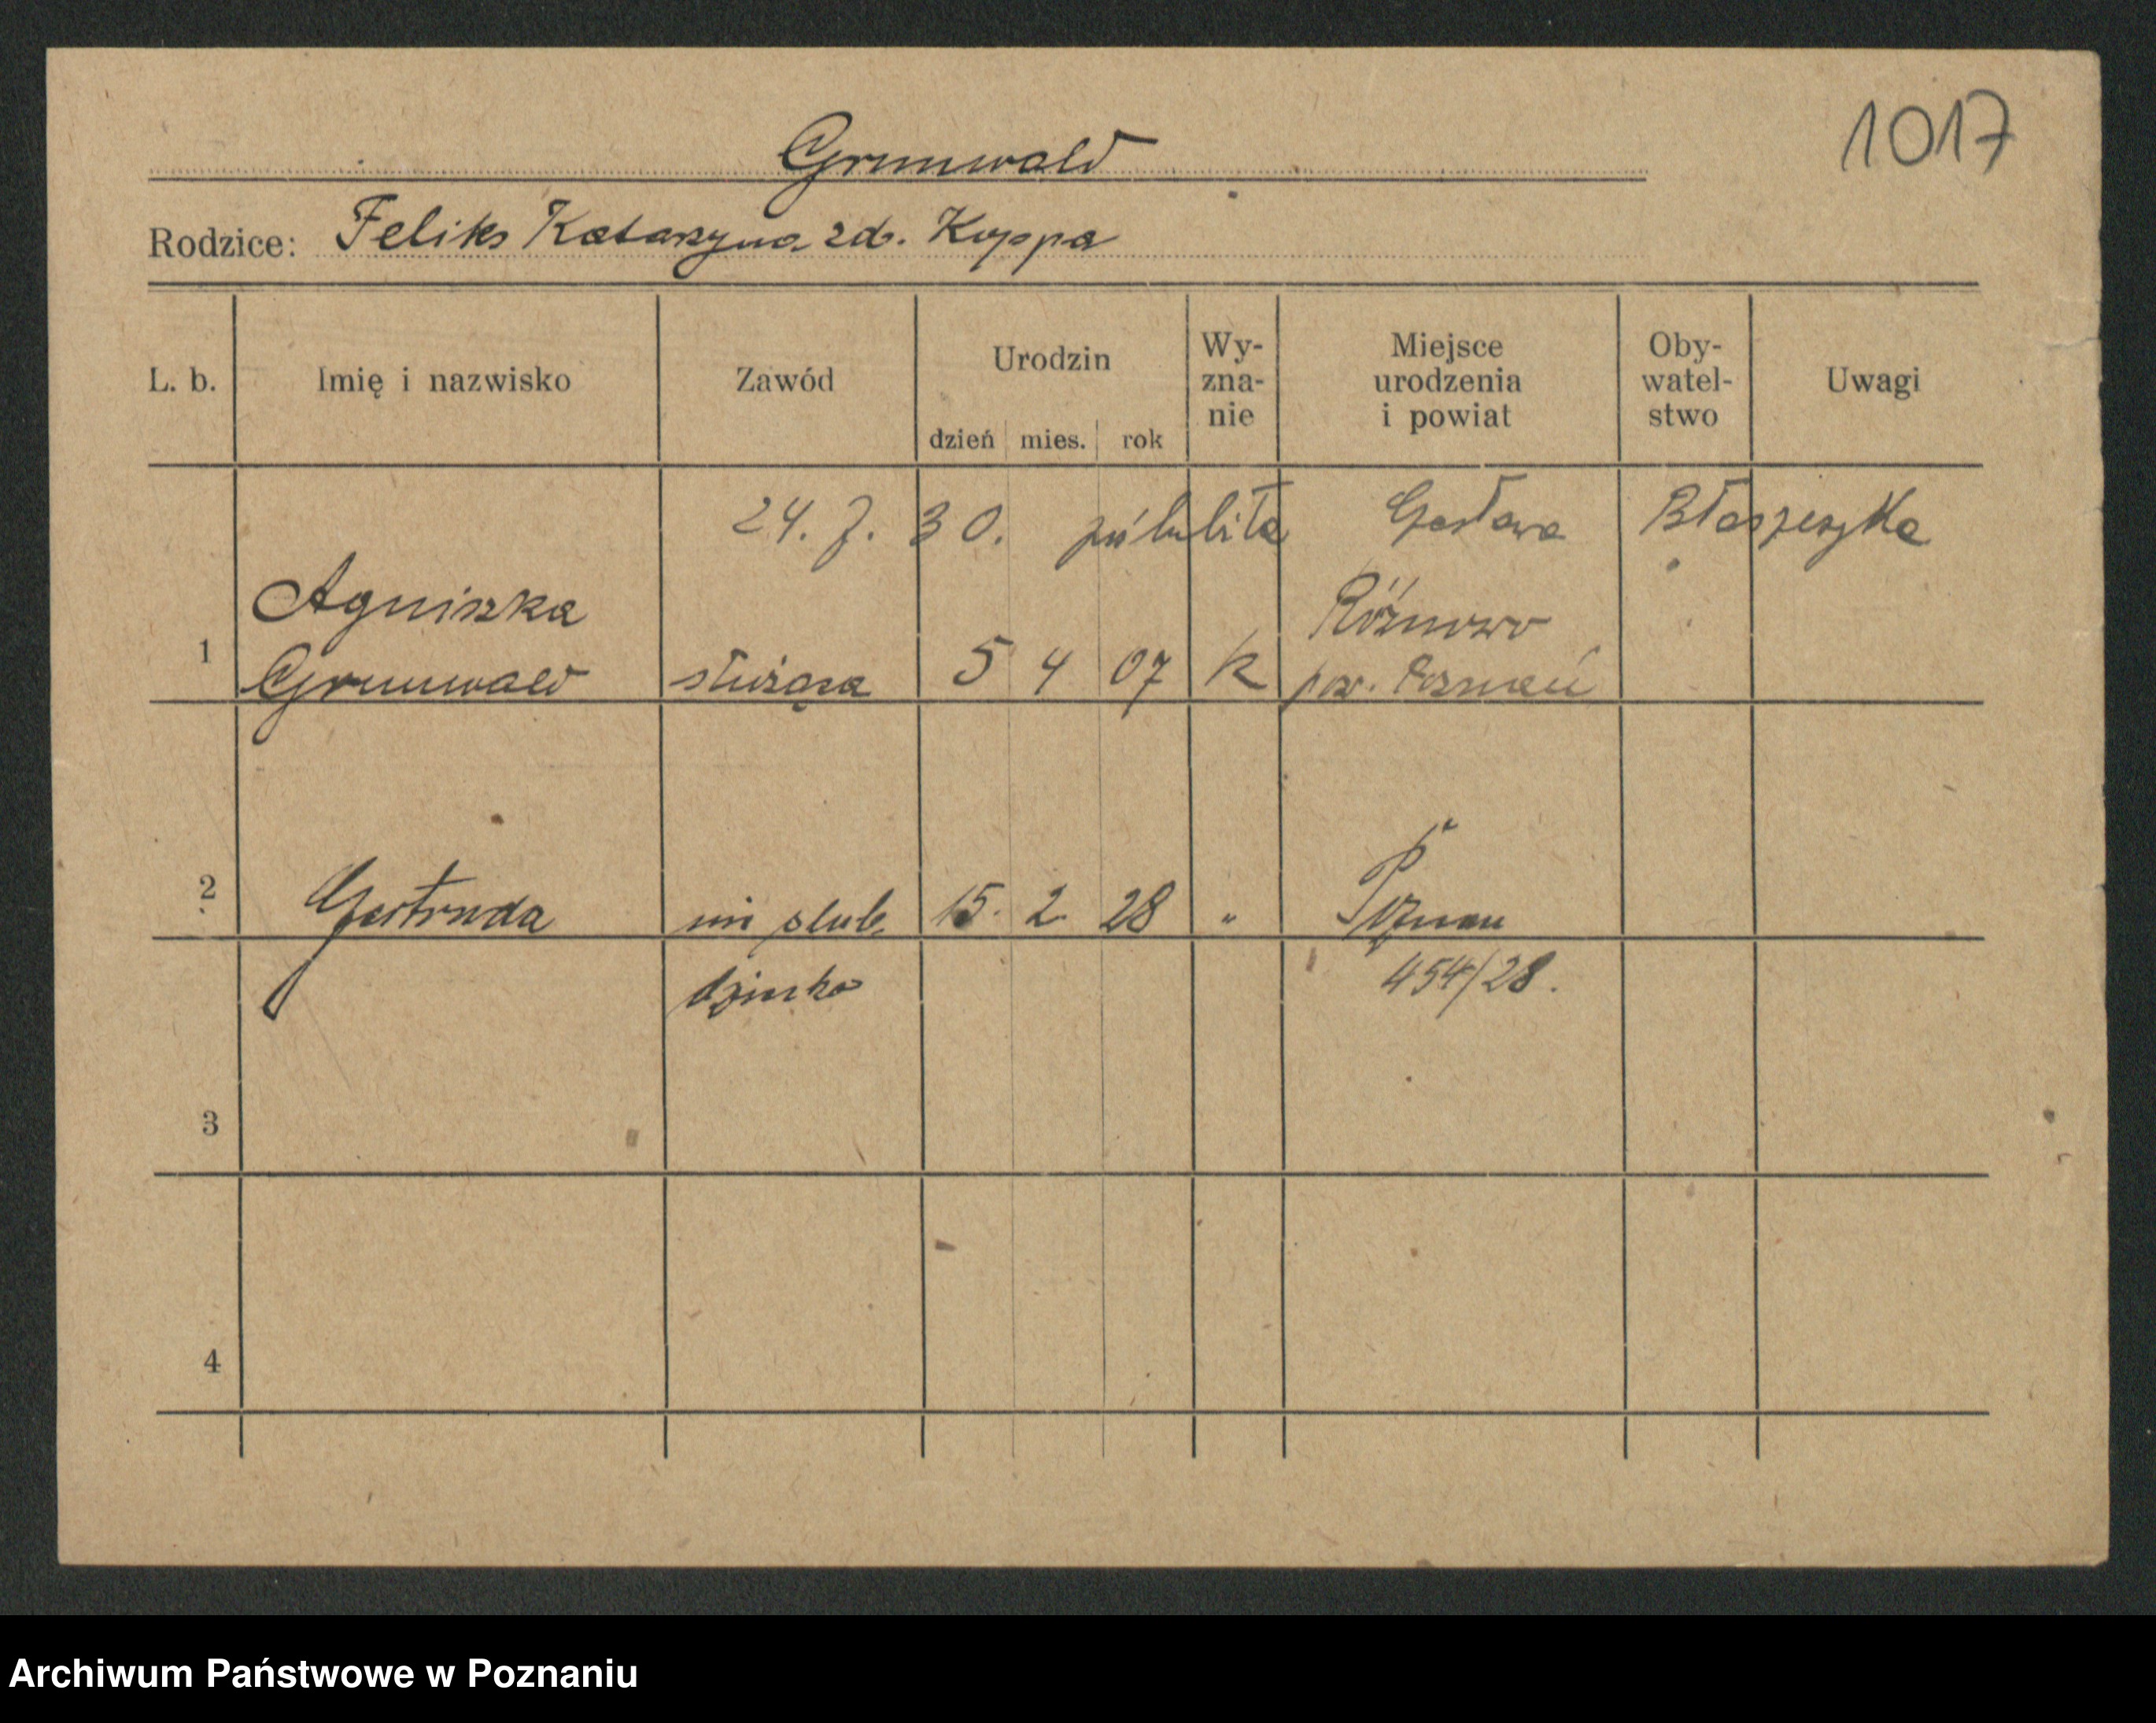 1017
Grunwald
Rodzice: Feliks Katarzyna zd. Kuppa
L. b. Imię i nazwisko Zawód Urodzin dzień mies. rok Wy-zna-nie Miejsce urodzenia i powiat Oby-watel-stwo Uwagi
24. 7. 30. póślubiła Gustawa Błaszczyka
1 Agniszka Grunwald służąca 5 4 07 k Różnowo pow. Poznań
2 Gertruda nieślub. dziecko 15. 2. 28 " Poznań 454/28.
3
4
Archiwum Państwowe w Poznaniu